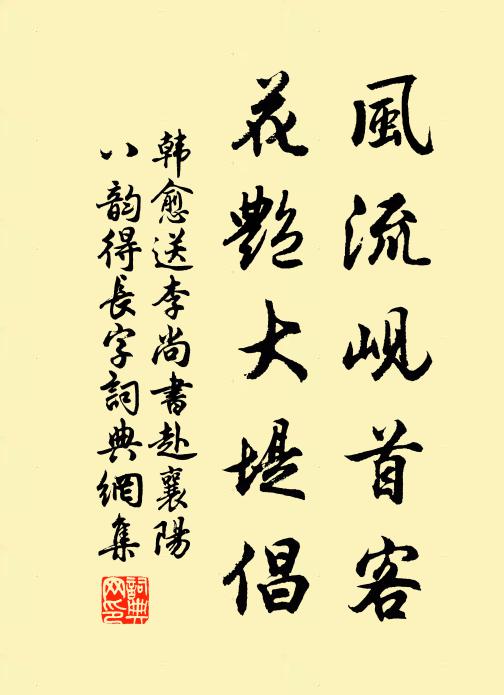 風流峴首客
花艷大堤倡
韓愈送李尚書赴襄陽
八韵得長字詞典網集
詞典
网印